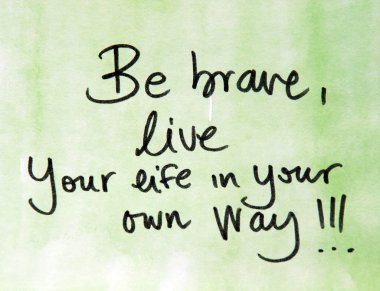 Be brave,
live
Your life in your
own way!!!...